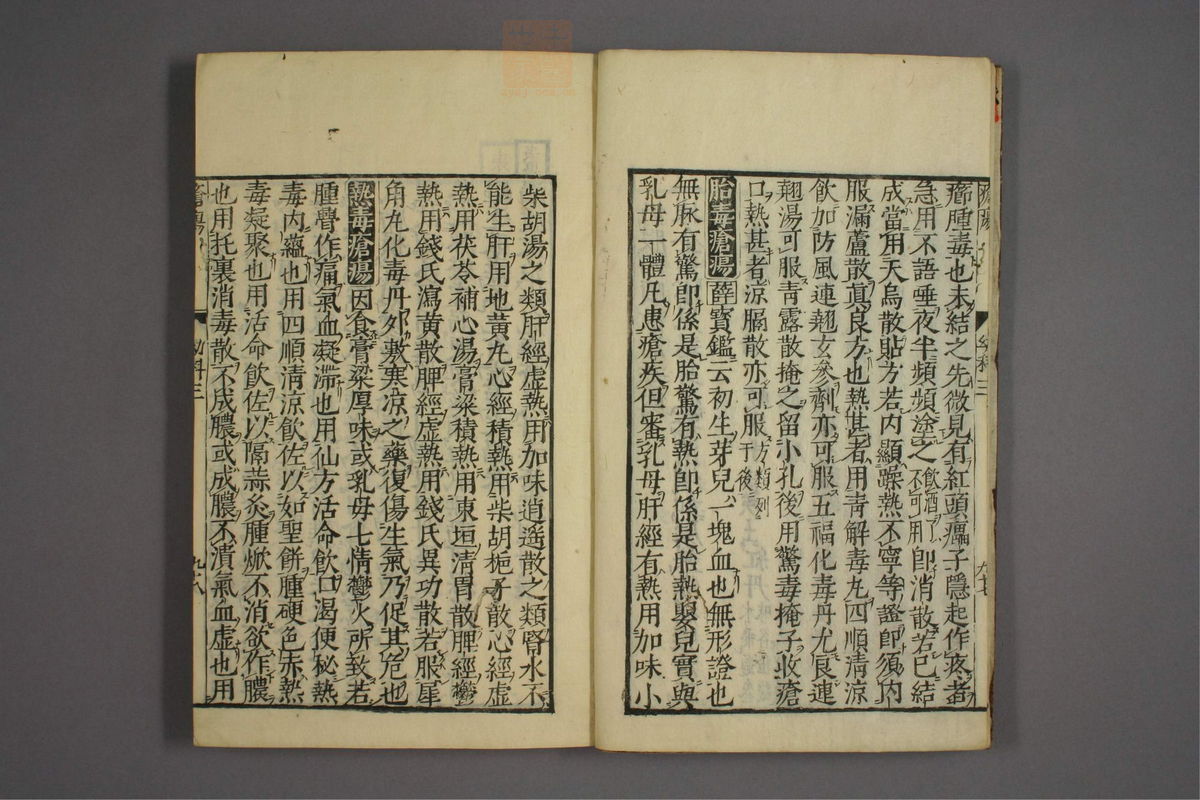 癤腫毒也未結之先微見有紅頭㿔子隱起作疼者
急用不語唾夜半頻頻塗之飲酒了不可用即消散若已結
成當用天烏散貼方若內顯躁熱不寧等證即須內
服漏蘆散眞良方也熱甚者用青解毒丸四順清涼
飲加防風連翹玄參劑亦可服五福化毒丹尤良連
翹湯可服青露散掩之留小孔後用驚毒掩子收瘡
口熱甚者涼膈散亦可服方類列于後
胎毒瘡瘍薛寶鑑云初生芽兒一塊血也無形證也
無脉有驚即係是胎驚有熱即係是胎熱嬰兒實與
乳母一體凡患瘡疾但審乳母肝經有熱用加味小
柴胡湯之類肝經虛熱用加味逍遙散之類腎水不
能生肝用地黃丸心經積熱用柴胡梔子散心經虛
熱用茯苓補心湯膏粱積熱用東垣清胃散脾經鬱
熱用錢氏瀉黃散脾經虛熱用錢氏異功散若服犀
角丸化毒丹外敷寒凉之藥復傷生氣乃促其危也
熱毒瘡瘍因食膏粱厚味或乳母七情鬱火所致若
腫脅作痛氣血凝滯也用仙方活命飲口渴便秘熱
毒內蘊也用四順清涼飲佐以如聖餅腫硬色赤熱
毒凝聚也用活命飲佐以隔蒜灸腫焮不消欲作膿
也用托裏消毒散不成膿或成膿不潰氣血虛也用
幼科三
九十八